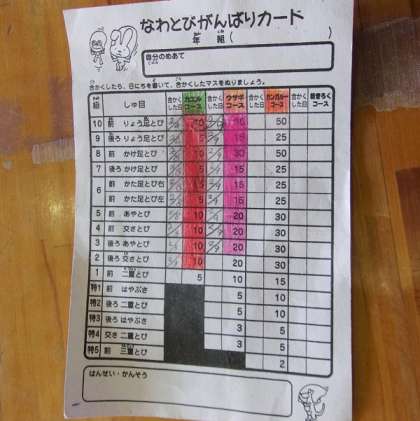 なわとびがんばりカード
年 組 ( )
自分のめあて
合かくしたら、日にちを書いて、合かくしたマスをぬりましょう。
級 しゅ目 合かくした日 カエルコース 合かくした日 ウサギコース 合かくした日 カンガルーコース 合かくした日
10 前 りょう足とび 50
9 後ろ りょう足とび 5 15 25
8 前 かけ足とび 10 30 50
7 後ろ かけ足とび 5 15 25
6 前 かた足とび右 5 15 25
前 かた足とび左 5 15 25
5 前 あやとび 10 20 30
4 前 交さとび 10 20 30
3 後ろ あやとび 10 20 30
2 後ろ 交さとび 10 20 30
1 前 二重とび 5 10 15
特1 前 はやぶさ 5 10
特2 後ろ 二重とび 5 10
特3 後ろ はやぶさ 3 5
特4 交さ 二重とび 3 5
特5 前 三重とび 2
はんせい・かんそう